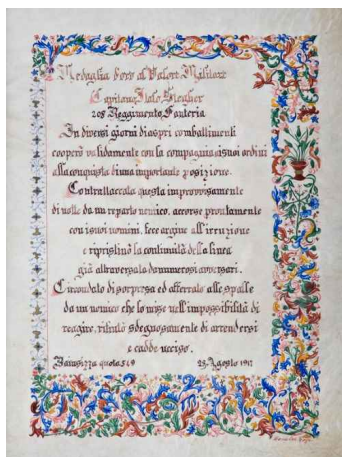 Medaglia d'oro al Valore Militare
Capitano Italo Stegher
208 Reggimento Fanteria
In diversi giorni di aspri combattimenti
cooperò validamente con la compagnia ai suoi ordini
alla conquista di una importante posizione.
Contrattaccata questa improvvisamente
di notte da un reparto nemico, accorse prontamente
con i suoi uomini, fece argine all'irruzione
e ripristinò la continuità della linea
già attraversata da numerosi avversari.
Circondato di sorpresa ed afferrato alle spalle
da un nemico che lo mise nell'impossibilità di
reagire, rifiutò sdegnosamente di arrendersi
e cadde ucciso.
Bainsizza quota 549 23 Agosto 1917